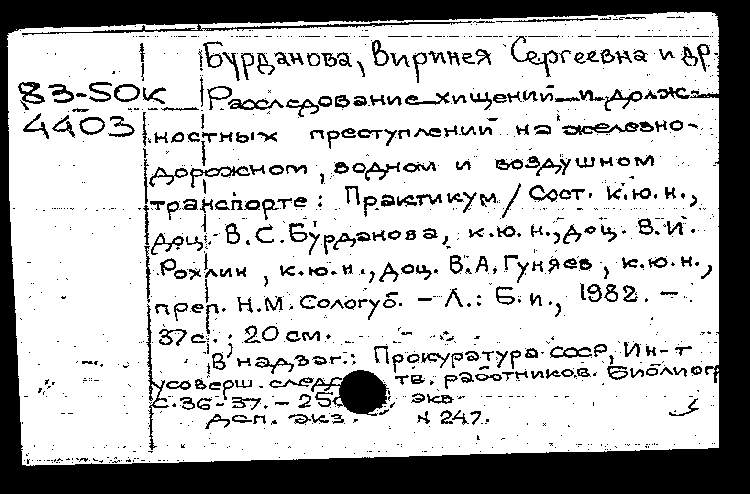 Бурданова, Виринея Сергеевна и др.
83-50к Расследование хищений и долж-
4403 ностных преступлений на железно-
дорожном, водном и воздушном
транспорте: Практикум / Сост. к.ю.н.,
доц. В.С. Бурданова, к.ю.н., доц. В.И.
Рохлин, к.ю.н., доц. В.А. Гуняев, к.ю.н.,
преп. Н.М. Сологуб. - Л.: Б.и., 1982. -
37с.; 20 см.
В надзаг.: Прокуратура СССР, Ин-т
усоверш. следств. работников. Библиогр
с. 36-37. - 250 экз.
Деп. экз. N 247.